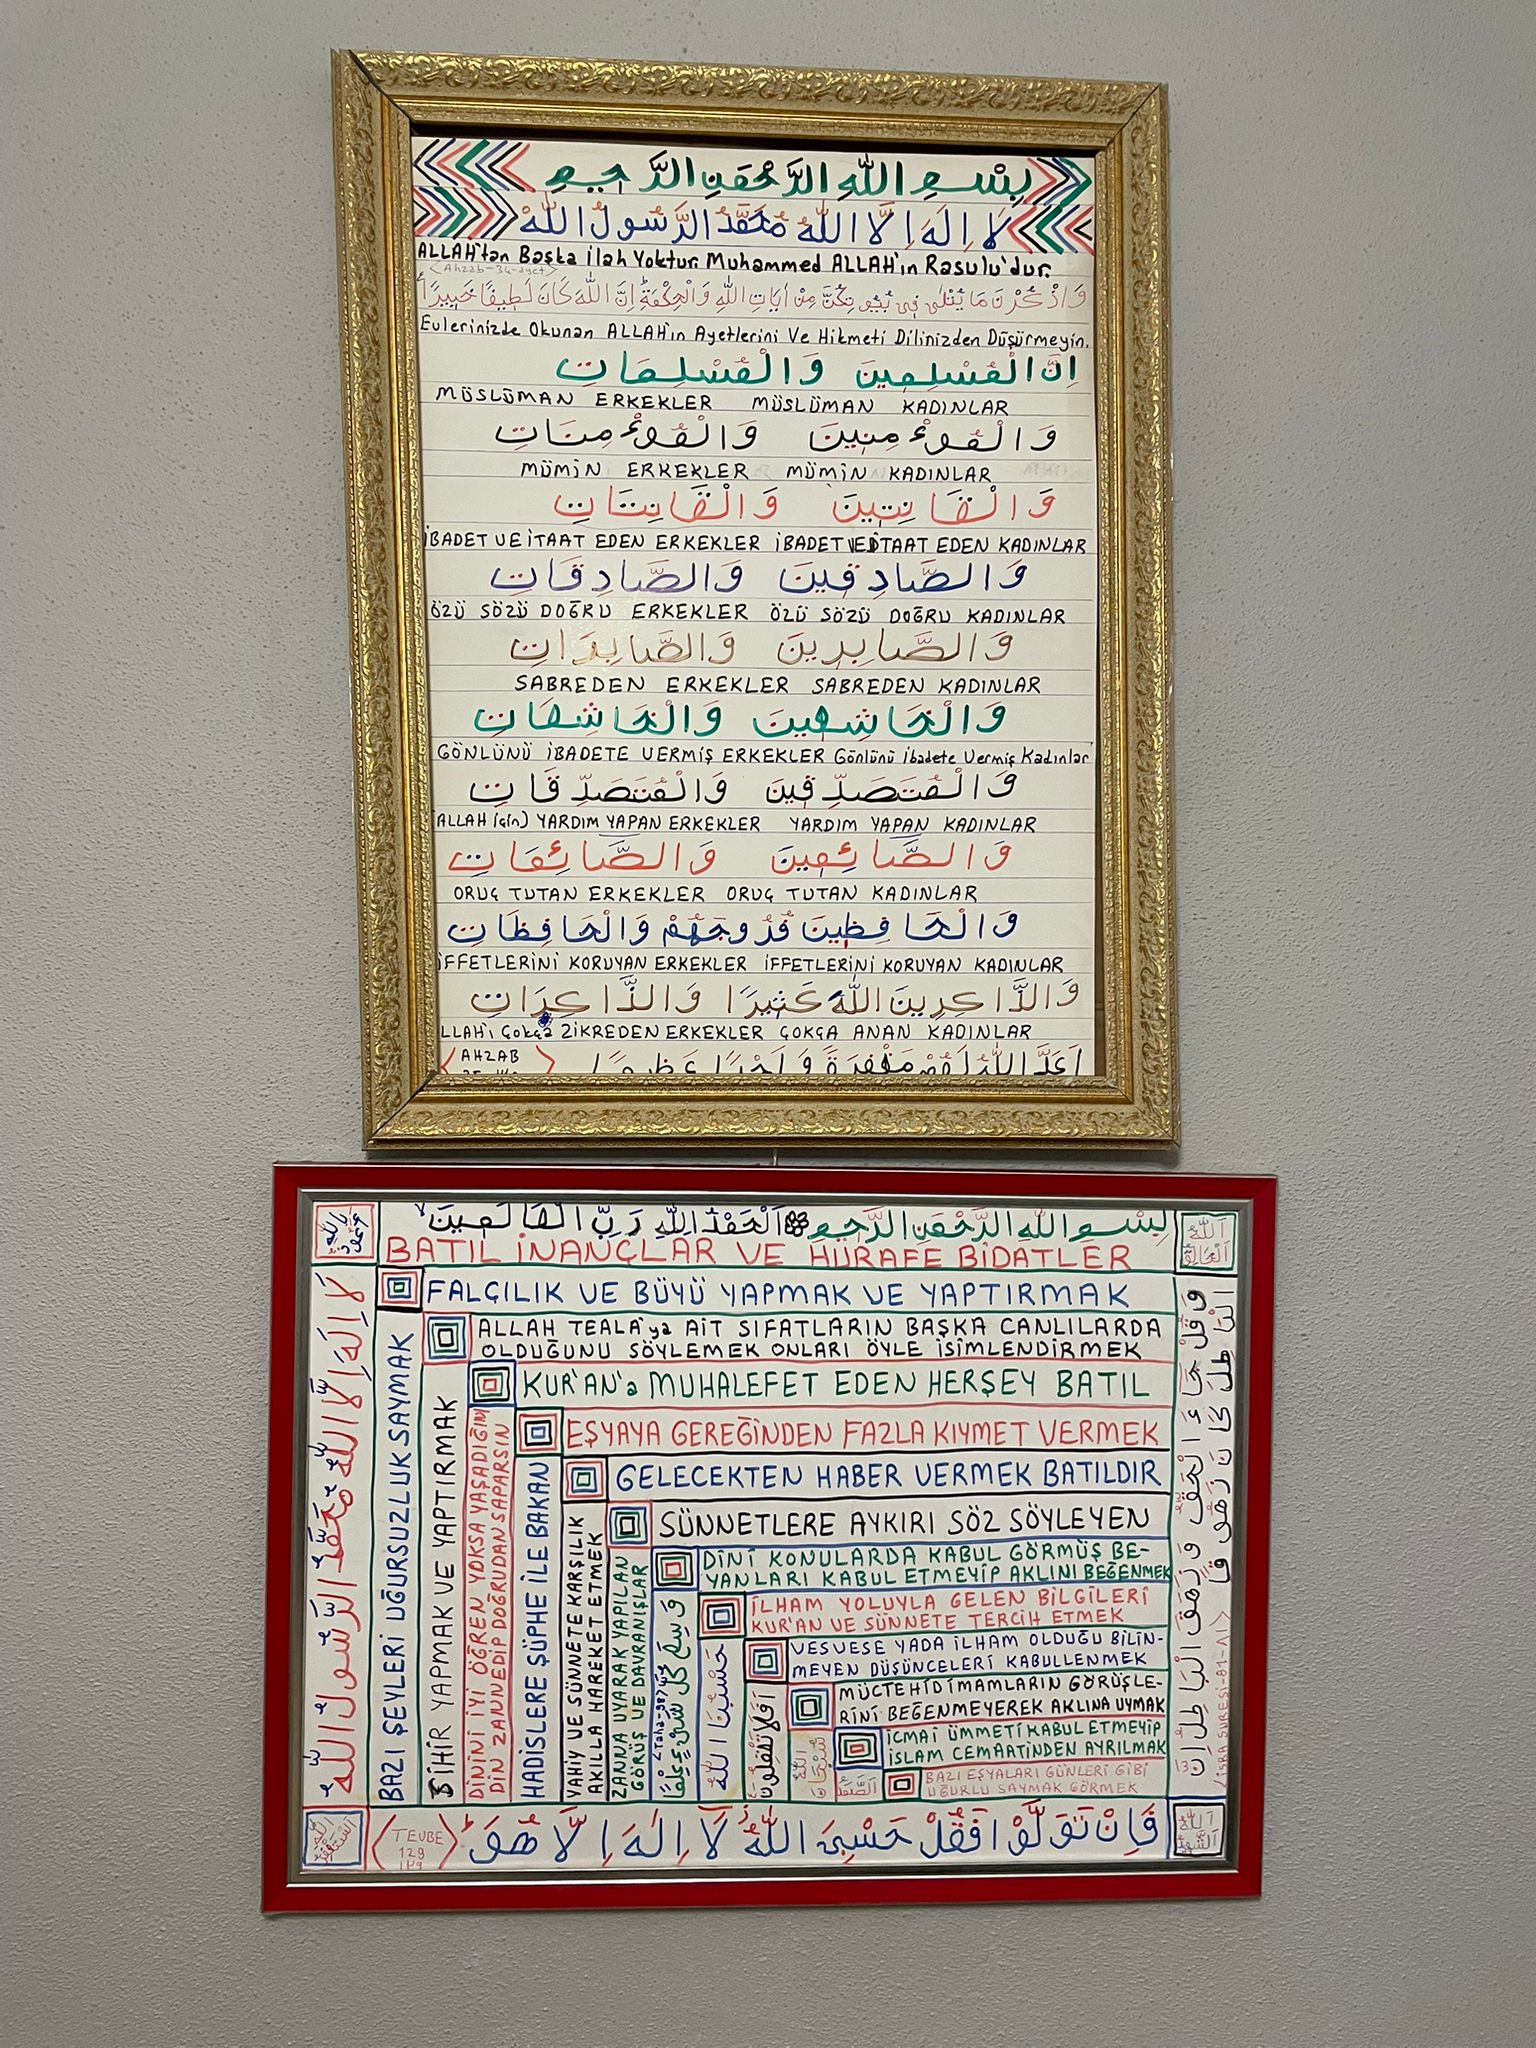 بِسْمِ اللّٰهِ الرَّحْمٰنِ الرَّحِيمِ
لَا اِلٰهَ اِلَّا اللّٰهُ مُحَمَّدُ الرَّسُولُ اللّٰهْ
ALLAH'tan Başka İlah Yoktur. Muhammed ALLAH'ın Rasulu'dur.
<Ahzab-34-ayet>
وَاذْكُرْنَ مَا يُتْلٰى فِى بُيُوتِكُنَّ مِنْ اٰيَاتِ اللّٰهِ وَالْحِكْمَةِ اِنَّ اللّٰهَ كَانَ لَطِيفًا خَبِيرًا
Evlerinizde Okunan ALLAH'ın Ayetlerini Ve Hikmeti Dilinizden Düşürmeyin.
اِنَّ الْمُسْلِمِينَ وَالْمُسْلِمَاتِ
MÜSLÜMAN ERKEKLER MÜSLÜMAN KADINLAR
وَالْمُوءْمِنِينَ وَالْمُوءْمِنَاتِ
MÜMİN ERKEKLER MÜMİN KADINLAR
وَالْقَانِتِينَ وَالْقَانِتَاتِ
İBADET VE İTAAT EDEN ERKEKLER İBADET VE İTAAT EDEN KADINLAR
وَالصَّادِقِينَ وَالصَّادِقَاتِ
ÖZÜ SÖZÜ DOĞRU ERKEKLER ÖZÜ SÖZÜ DOĞRU KADINLAR
وَالصَّابِرِينَ وَالصَّابِرَاتِ
SABREDEN ERKEKLER SABREDEN KADINLAR
وَالْخَاشِعِينَ وَالْخَاشِعَاتِ
GÖNLÜNÜ İBADETE VERMİŞ ERKEKLER Gönlünü İbadete Vermiş Kadınlar
وَالْمُتَصَدِّقِينَ وَالْمُتَصَدِّقَاتِ
ALLAH için) YARDIM YAPAN ERKEKLER YARDIM YAPAN KADINLAR
وَالصَّائِمِينَ وَالصَّائِمَاتِ
ORUÇ TUTAN ERKEKLER ORUÇ TUTAN KADINLAR
وَالْحَافِظِينَ فُرُوجَهُمْ وَالْحَافِظَاتِ
İFFETLERİNİ KORUYAN ERKEKLER İFFETLERİNİ KORUYAN KADINLAR
وَالذَّاكِرِينَ اللّٰهَ كَثِيرًا وَالذَّاكِرَاتِ
LLAH'ı Çokça ZİKREDEN ERKEKLER ÇOKÇA ANAN KADINLAR
اَعَدَّ اللّٰهُ لَهُمْ مَغْفِرَةً وَاَجْرًا عَظِيمًا
AHZAB
بِسْمِ اللّٰهِ الرَّحْمٰنِ الرَّحِيمِ اَلْحَمْدُ لِلّٰهِ رَبِّ الْعَالَمِينَ
BATIL İNANÇLAR VE HURAFE BİDATLER
FALÇILIK VE BÜYÜ YAPMAK VE YAPTIRMAK
ALLAH TEALA'ya AİT SIFATLARIN BAŞKA CANLILARDA
OLDUĞUNU SÖYLEMEK ONLARI ÖYLE İSİMLENDİRMEK
KUR'AN'a MUHALEFET EDEN HERŞEY BATIL
EŞYAYA GEREĞİNDEN FAZLA KIYMET VERMEK
GELECEKTEN HABER VERMEK BATILDIR
SÜNNETLERE AYKIRI SÖZ SÖYLEYEN
DİNİ KONULARDA KABUL GÖRMÜŞ BE-
YANLARI KABUL ETMEYİP AKLINI BEĞENMEK
İLHAM YOLUYLA GELEN BİLGİLERİ
KUR'AN VE SÜNNETE TERCİH ETMEK
VESVESE YADA İLHAM OLDUĞU BİLİN-
MEYEN DÜŞÜNCELERİ KABULLENMEK
MÜCTEHİD İMAMLARIN GÖRÜŞLE-
RİNİ BEĞENMEYEREK AKLINA UYMAK
İCMAİ ÜMMETİ KABUL ETMEYİP
İSLAM CEMAATİNDEN AYRILMAK
BAZI EŞYALARI GÜNLERİ GİBİ
UĞURLU SAYMAK GÖRMEK
لَا اِلٰهَ اِلَّا اللّٰهُ مُحَمَّدُ الرَّسُولُ اللّٰهُ
BAZI ŞEYLERİ UĞURSUZLUK SAYMAK
SİHİR YAPMAK VE YAPTIRMAK
DİNİNİ İYİ ÖĞREN YOKSA YAŞADIĞIN
DİN ZANNEDİP DOĞRUDAN SAPARSIN
HADİSLERE ŞÜPHE İLE BAKAN
VAHİY VE SÜNNETE KARŞILIK
AKILLA HAREKET ETMEK
ZANNA UYARAK YAPILAN
GÖRÜŞ VE DAVRANIŞLAR
وَسِعَ كُلَّ شَىْءٍ عِلْمًا
<Taha-98
حَسْبُنَا اللّٰهُ
اَفَلَا تَعْقِلُونَ
سُبْحَانَ اللّٰهِ
وَقُلْ جَاءَ الْحَقُّ وَزَهَقَ الْبَاطِلُ اِنَّ
الْبَاطِلَ كَانَ زَهُوقًا
<İSRA SURESİ-81-٨١>
فَاِنْ تَوَلَّوْا فَقُلْ حَسْبِىَ اللّٰهُ لَا اِلٰهَ اِلَّا هُوَ
TEVBE
129
١٢٩